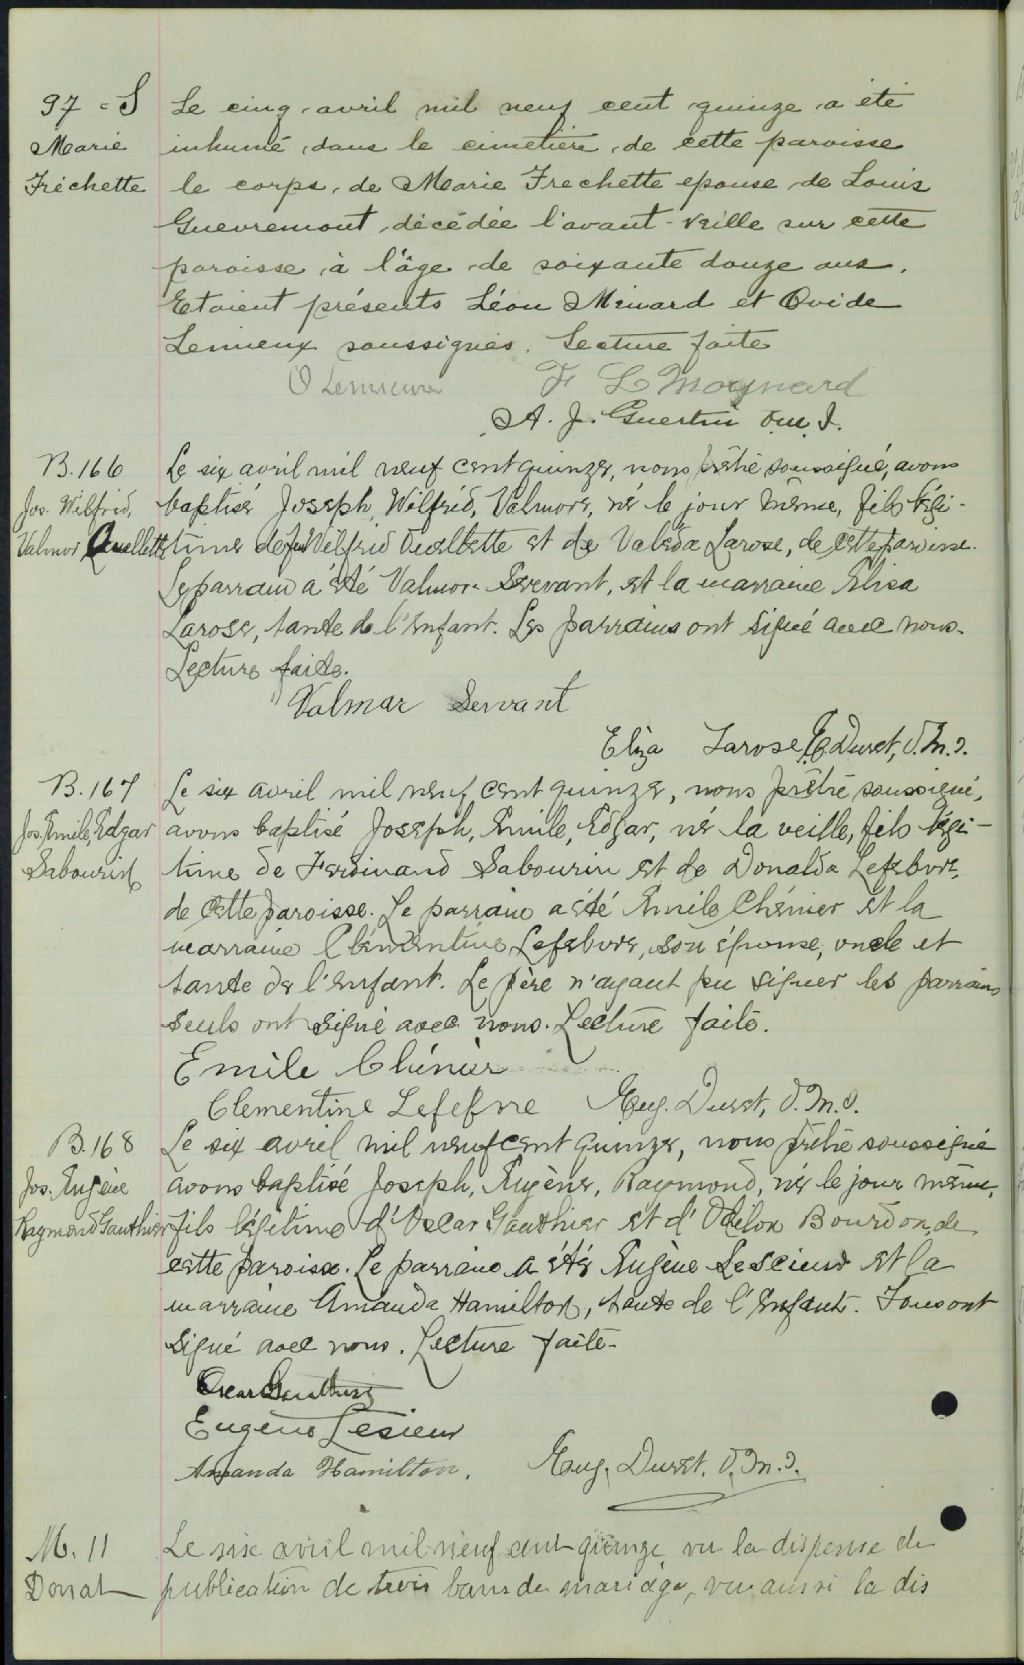 97 - S
Marie
Fréchette
Le cinq avril mil neuf cent quinze a été
inhumé dans le cimetière de cette paroisse
le corps de Marie Frechette epouse de Louis
Guevremont, décédée l'avant-veille sur cette
paroisse à l'âge de soixante douze ans.
Etaient présents Léon Ménard et Ovide
Lemieux soussignés. Lecture faite
O Lemieux F L Maynard
A. J. Guertin o.m.I.
B. 166
Jos. Wilfrid,
Valmor Ouellette
Le six avril mil neuf cent quinze, nous prêtre soussigné, avons
baptisé Joseph, Wilfrid, Valmore, né le jour même, fils légi-
time de Wilfrid Ouellette et de Valéda Larose, de cette paroisse.
Le parrain a été Valmore Servant, et la marraine Eliza
Larose, tante de l'enfant. Les parrains ont signé avec nous.
Lecture faite.
Valmar Servant
Eliza Larose E. Duret, O.M.I.
B. 167
Jos. Emile, Edgar
Sabourin
Le six avril mil neuf cent quinze, nous prêtre soussigné,
avons baptisé Joseph, Emile, Edgar, né la veille, fils légi-
time de Ferdinand Sabourin et de Donalda Lefebvre,
de cette paroisse. Le parrain a été Emile Chénier et la
marraine Clémentine Lefebvre, son épouse, oncle et
tante de l'enfant. Le père n'ayant pu signer les parrains
seuls ont signé avec nous. Lecture faite.
Emile Chénier
Clementine Lefefvre Eug. Duret, O.M.I.
B. 168
Jos. Eugène
Raymond Gauthier
Le six avril mil neuf cent quinze, nous prêtre soussigné
avons baptisé Joseph, Eugène, Raymond, né le jour même,
fils légitime d'Oscar Gauthier et d'Odélon Bourdon, de
cette paroisse. Le parrain a été Eugène Lesieur et la
marraine Amanda Hamilton, tante de l'enfant. Tous ont
signé avec nous. Lecture faite.
Oscar Gauthier
Eugène Lesieur
Amanda Hamilton. Eug. Duret. O.M.I.
M. 11
Donat
Le six avril mil neuf cent quinze, vu la dispense de
publication de trois bans de mariage, vu aussi la dis